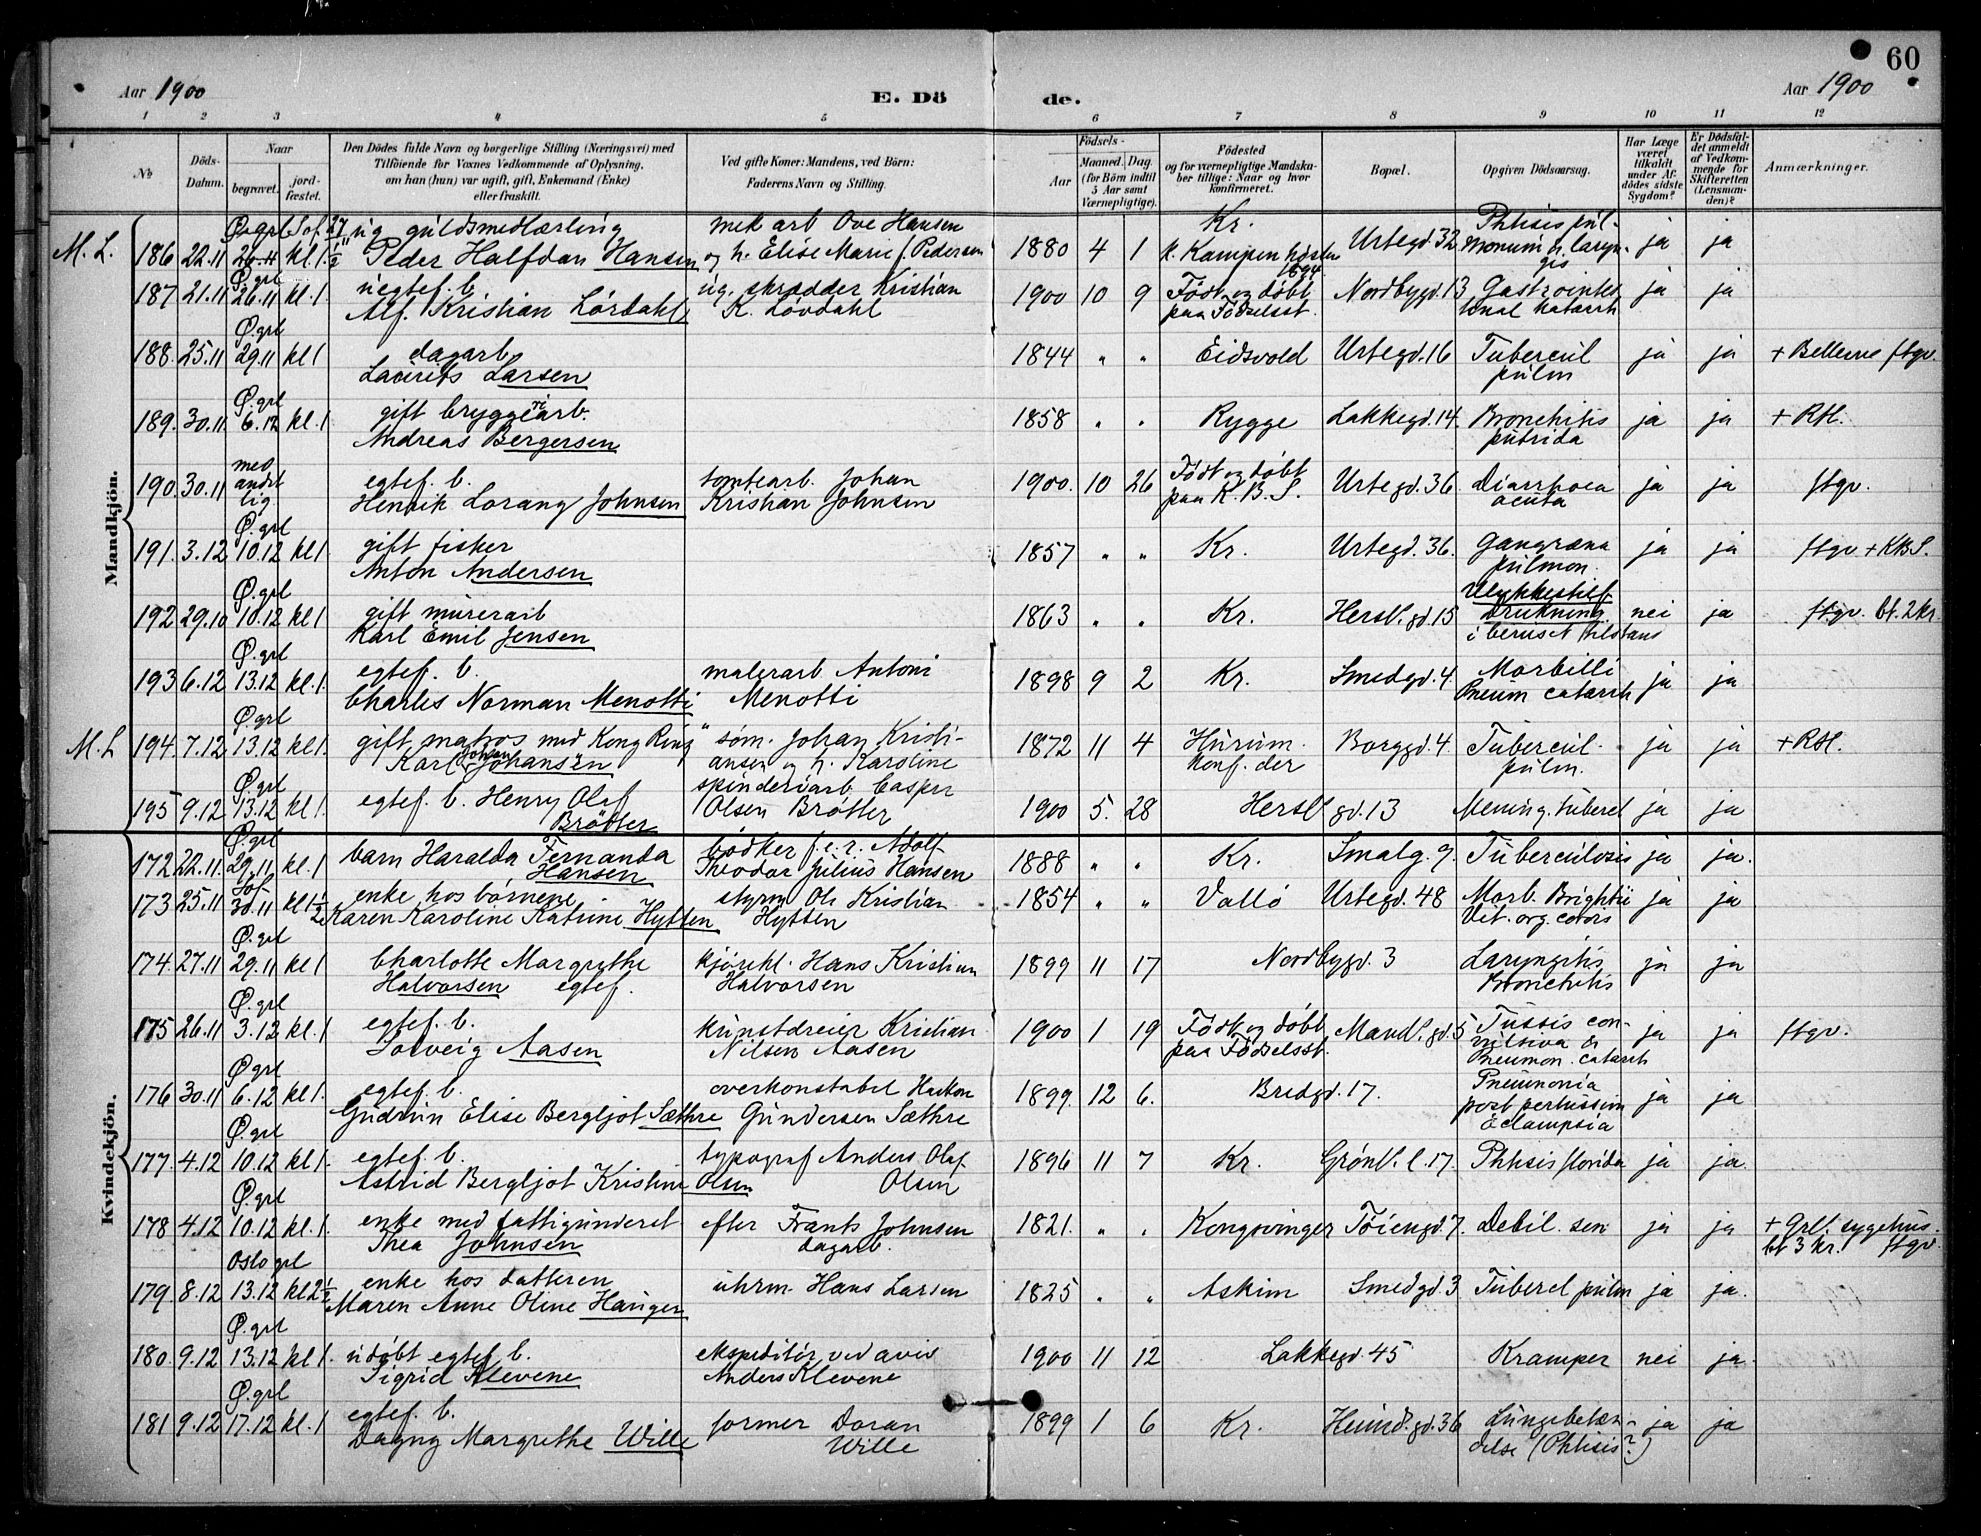 60
Aar 1900
E. Dö
de.
Aar 1900
1 2 3 4 5 6 7 8 9 10 11 12
№
Döds-Datum.
Naar
begravet.
jord-fæstet.
Den Dödes fulde Navn og borgerlige Stilling (Næringsvei) med
Tilföiende for Voxnes Vedkommende af Oplysning,
om han (hun) var ugift, gift, Enkemand (Enke)
eller fraskilt.
Ved gifte Koner: Mandens, ved Börn:
Faderens Navn og Stilling.
Födsels-
Aar
Maaned. Dag.
(for Börn indtil
5 Aar samt
Værnepligtige).
Födested
og for værnepligtige Mandska-
ber tillige: Naar og hvor
konfirmeret.
Bopæl.
Opgiven Dödsaarsag.
Har Læge
været
tilkaldt
under Af-
dödes sidste
Sygdom?
Er Dödsfal-
det anmeldt
af Vedkom-
mende for
Skifteretten
(Lensman-
den)?
Anmærkninger.
Mandkjön.
M. L. 186 22.11 Ø.grl 26.11 Sof. 27/11 kl. 1 1/2 ug guldsmedlærling mek arb Ove Hansen 1880 4 1 Kr. Urtegd. 32 Phthisis pul- ja ja
Peder Halfdan Hansen og h. Elise Marie f. Pedersen k. Kampen høsten 1894 monum & laryn-gis
187 21.11 Ø.grl 26.11 kl. 1 uegtef. b. ug. skrædder Kristian 1900 10 9 Födt og döbt Nordbygd. 13 Gastrointes ja ja
Alf. Kristian Lövdahl K. Lövdahl paa Födselsst. tinal katarrh
188. 25.11 Ø.grl 29.11 kl 1 dagarb. 1844 " " Eidsvold Urtegd. 16 Tubercul ja ja + Bellevue ftgv.
Laurits Larsen pulm
189. 30.11 Ø.grl 6.12 kl. 1 gift bryggeriarb. 1858 " " Rygge Lakkegd. 14 Bronchitis ja ja + RH.
Andreas Bergersen putrida
190. 30.11 med andet lig egtef. b. tomtearb. Johan 1900. 10 26 Födt og döbt Urtegd. 36. Diarrhoea ja ja ftgv.
Henrik Lorang Johnsen Kristian Johnsen paa K. B. S. acuta
191. 3.12 Ø.grl 10.12 kl 1 gift fisker 1857 " " Kr. Urtegd. 36. Gangræna ja ja ftgv + KBS.
Anton Andersen pulmon.
192 29.10 Ø.grl 10.12 kl 1 gift murerarb 1863 " " Kr. Hersl. gd. 15 Ulykkestilf. Drukning nei ja ftgv. bt. 2 kr.
Karl Emil Jensen i beruset tilstand
193 6.12 Ø.grl 13.12 kl. 1. egtef. b. malerarb Antoni 1898 9 2 Kr. Smedgd. 4. Morbilli ja ja
Charles Norman Menotti Menotti Pneum catarrh
M. L 194. 7.12 Ø.grl 13.12 kl 1. gift matros med "Kong Ring" söm. Johan Kristi- 1872 11 4 Hurum. Borggd. 4 Tubercul. ja ja + RH.
Karl Johan Johansen ansen og h. Karoline konf. der pulm.
195 9.12 Ø.grl 13.12 kl 1. egtef. b. Henry Olaf spinderiarb. Casper 1900 5. 28 Hersl gd. 13 Mening. tubercl ja ja
Brötter Olsen Brötter
Kvindekjön.
172 22.11. Ø.grl 29.11 kl. 1 barn Haralda Fernanda bödker f.e.r. Adolf 1888 " " Kr. Smalg. 9. Tuberculosis ja ja.
Hansen Theodor Julius Hansen
173 25.11 Sof 30.11 kl 1 1/2 enke hos börnene styrm Ole Kristian 1854 " " Vallö Urtegd. 48 Morb. Brightii ja ja
Karen Karoline Katrine Hytten Hytten Vit. org. cordis
174. 27.11 Ø.grl 29.11 kl 1 Charlotte Margrethe kjörekl. Hans Kristian 1899 11 17 Nordbygd. 3 Laryngitis ja ja
Halvorsen egtef. Halvorsen Bronchitis
175 26.11 Ø.grl 3.12 kl. 1 egtef. b. kunstdreier Kristian 1900 1 19 Födt og döbt Mandl. gd. 5 Tussis con- ja ja ftgv.
Solveig Aasen Nilsen Aasen paa Födselsst. vulsiva & Pneumon. catarrh
176 30.11 Ø.grl 6.12 kl 1. egtef. b. overkonstabel Haakon 1899. 12 6. Bredgd. 17. Pneumonia ja ja
Gudrun Elise Bergljot Sæthre Gundersen Sæthre post pertussim Eclampsia
177. 4.12 Ø.grl 10.12 kl 1. egtef. b. typograf Anders Olaf 1896 11 7 Kr. Grönl. l. 17. Phthisis florida ja ja.
Astrid Bergljot Kristine Olsen Olsen
178 4.12 Ø.grl 10.12 kl. 1. enke med fattigunderst efter Frants Johnsen 1821. " " Kongsvinger Töiengd. 7. Debil. sen ja ja + Grl. sygehus.
Thea Johnsen dagarb. bt 3 kr. ftgv.
179. 8.12 Oslo grl 13.12 kl 2 1/2 enke hos datteren uhrm. Hans Larsen 1825 " " Askim Smedgd. 3 Tubercl pulm ja ja.
Maren Anne Oline Haugen
180. 9.12 Ø.grl 13.12 kl 1. udöbt egtef. b. ekspeditör ved avis 1900 11 12 Lakkegd. 45 Kramper nei ja.
Sigrid Klevene Anders Klevene
181 9.12 Ø.grl 17.12 kl. 1 egtef. b. former Doran 1899 1 6 Kr. Heimd. gd. 36 Lungebetæn- ja ja
Dagny Margrethe Wille Wille delse (Phthisis?)